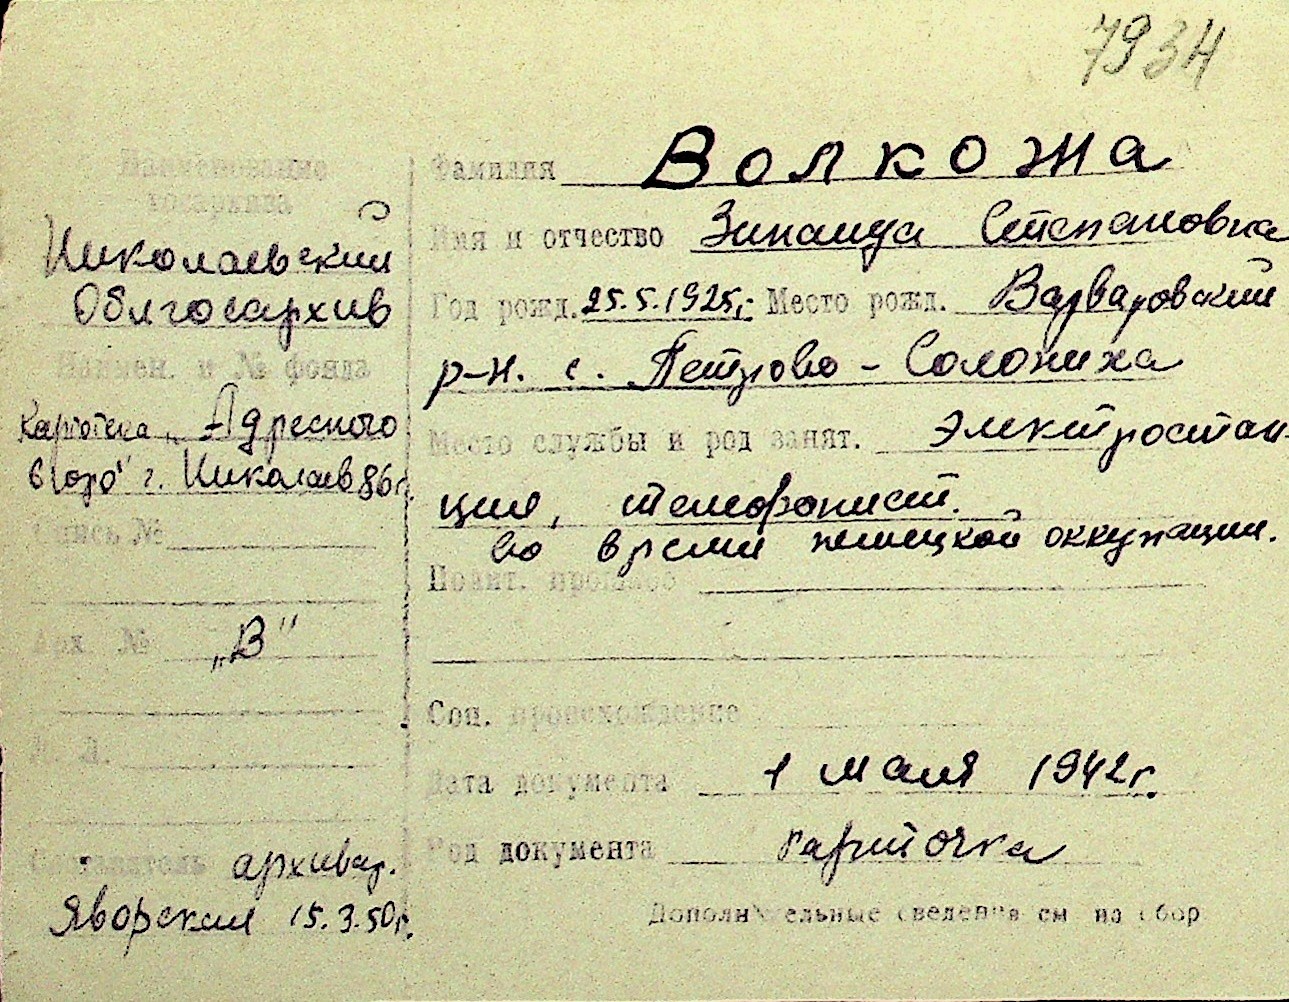 7934
Наименование
госархива
Николаевский
Облгосархив
Наимен. и № фонда
Картотека „Адресного
бюро" г. Николаев
Опись №
Арх. № „В"
Л. Л.
Составитель архивар.
Яворская 15.3.50г.
Фамилия Волкожа
Имя и отчество Зинаида Степановна
Год рожд. 25.5.1925г. Место рожд. Варваровский
р-н. с. Петрово - Солониха
Место службы и род занят. Электростан-
ция, телефонист.
во время немецкой оккупации.
Полит. прошлое
Соц. происхождение
Дата документа 1 мая 1942г.
Род документа карточка
Дополнительные сведения см на обор